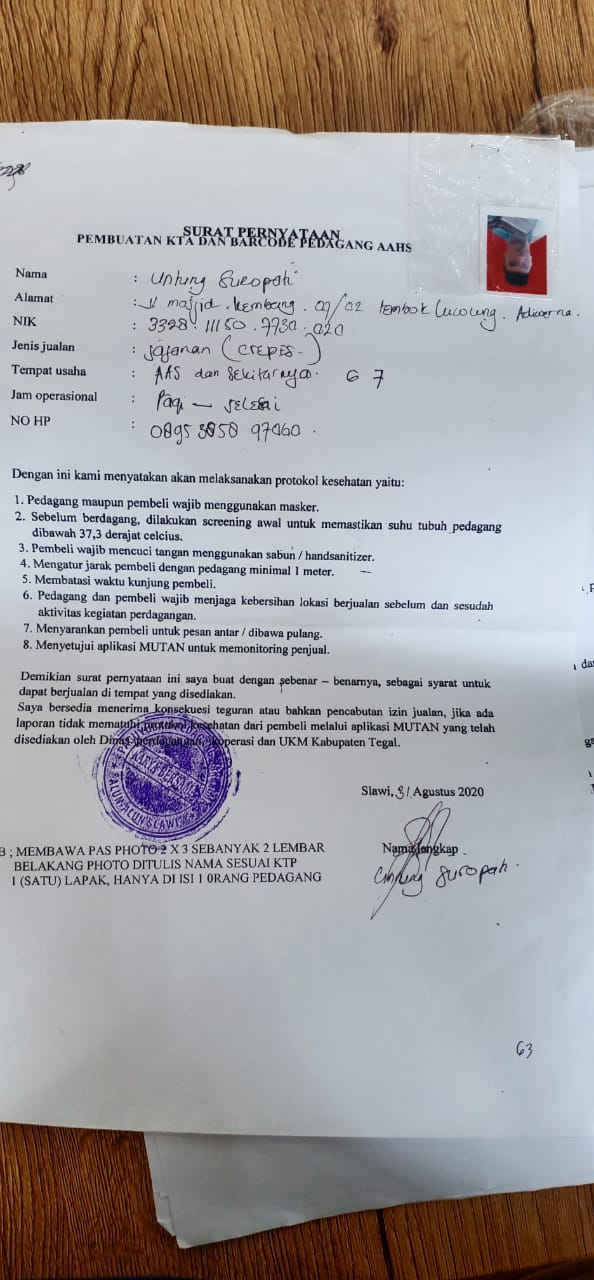 SURAT PERNYATAAN
PEMBUATAN KTA DAN BARCODE PEDAGANG AAHS
Nama : Untung Suropati
Alamat : Jl. masjid . kembang . 07/02 tembok Luwung . Adiwerna.
NIK : 3328. 11150 . 7730 . 020
Jenis jualan : Jajanan (crepes.)
Tempat usaha : AAS dan Sekitarnya. 67
Jam operasional : Pagi — selesai
NO HP : 0895 3858 97060 .
Dengan ini kami menyatakan akan melaksanakan protokol kesehatan yaitu:
1. Pedagang maupun pembeli wajib menggunakan masker.
2. Sebelum berdagang, dilakukan screening awal untuk memastikan suhu tubuh pedagang
dibawah 37,3 derajat celcius.
3. Pembeli wajib mencuci tangan menggunakan sabun / handsanitizer.
4. Mengatur jarak pembeli dengan pedagang minimal 1 meter.
5. Membatasi waktu kunjung pembeli.
6. Pedagang dan pembeli wajib menjaga kebersihan lokasi berjualan sebelum dan sesudah
aktivitas kegiatan perdagangan.
7. Menyarankan pembeli untuk pesan antar / dibawa pulang.
8. Menyetujui aplikasi MUTAN untuk memonitoring penjual.
Demikian surat pernyataan ini saya buat dengan sebenar – benarnya, sebagai syarat untuk
dapat berjualan di tempat yang disediakan.
Saya bersedia menerima konsekuesi teguran atau bahkan pencabutan izin jualan, jika ada
laporan tidak mematuhi protokol kesehatan dari pembeli melalui aplikasi MUTAN yang telah
disediakan oleh Dinas perdagangan, koperasi dan UKM Kabupaten Tegal.
ALUN-ALUN SLAWI
Slawi, 31 Agustus 2020
B ; MEMBAWA PAS PHOTO 2 X 3 SEBANYAK 2 LEMBAR
BELAKANG PHOTO DITULIS NAMA SESUAI KTP
1 (SATU) LAPAK, HANYA DI ISI 1 0RANG PEDAGANG
Nama lengkap
Untung Suropati.
63